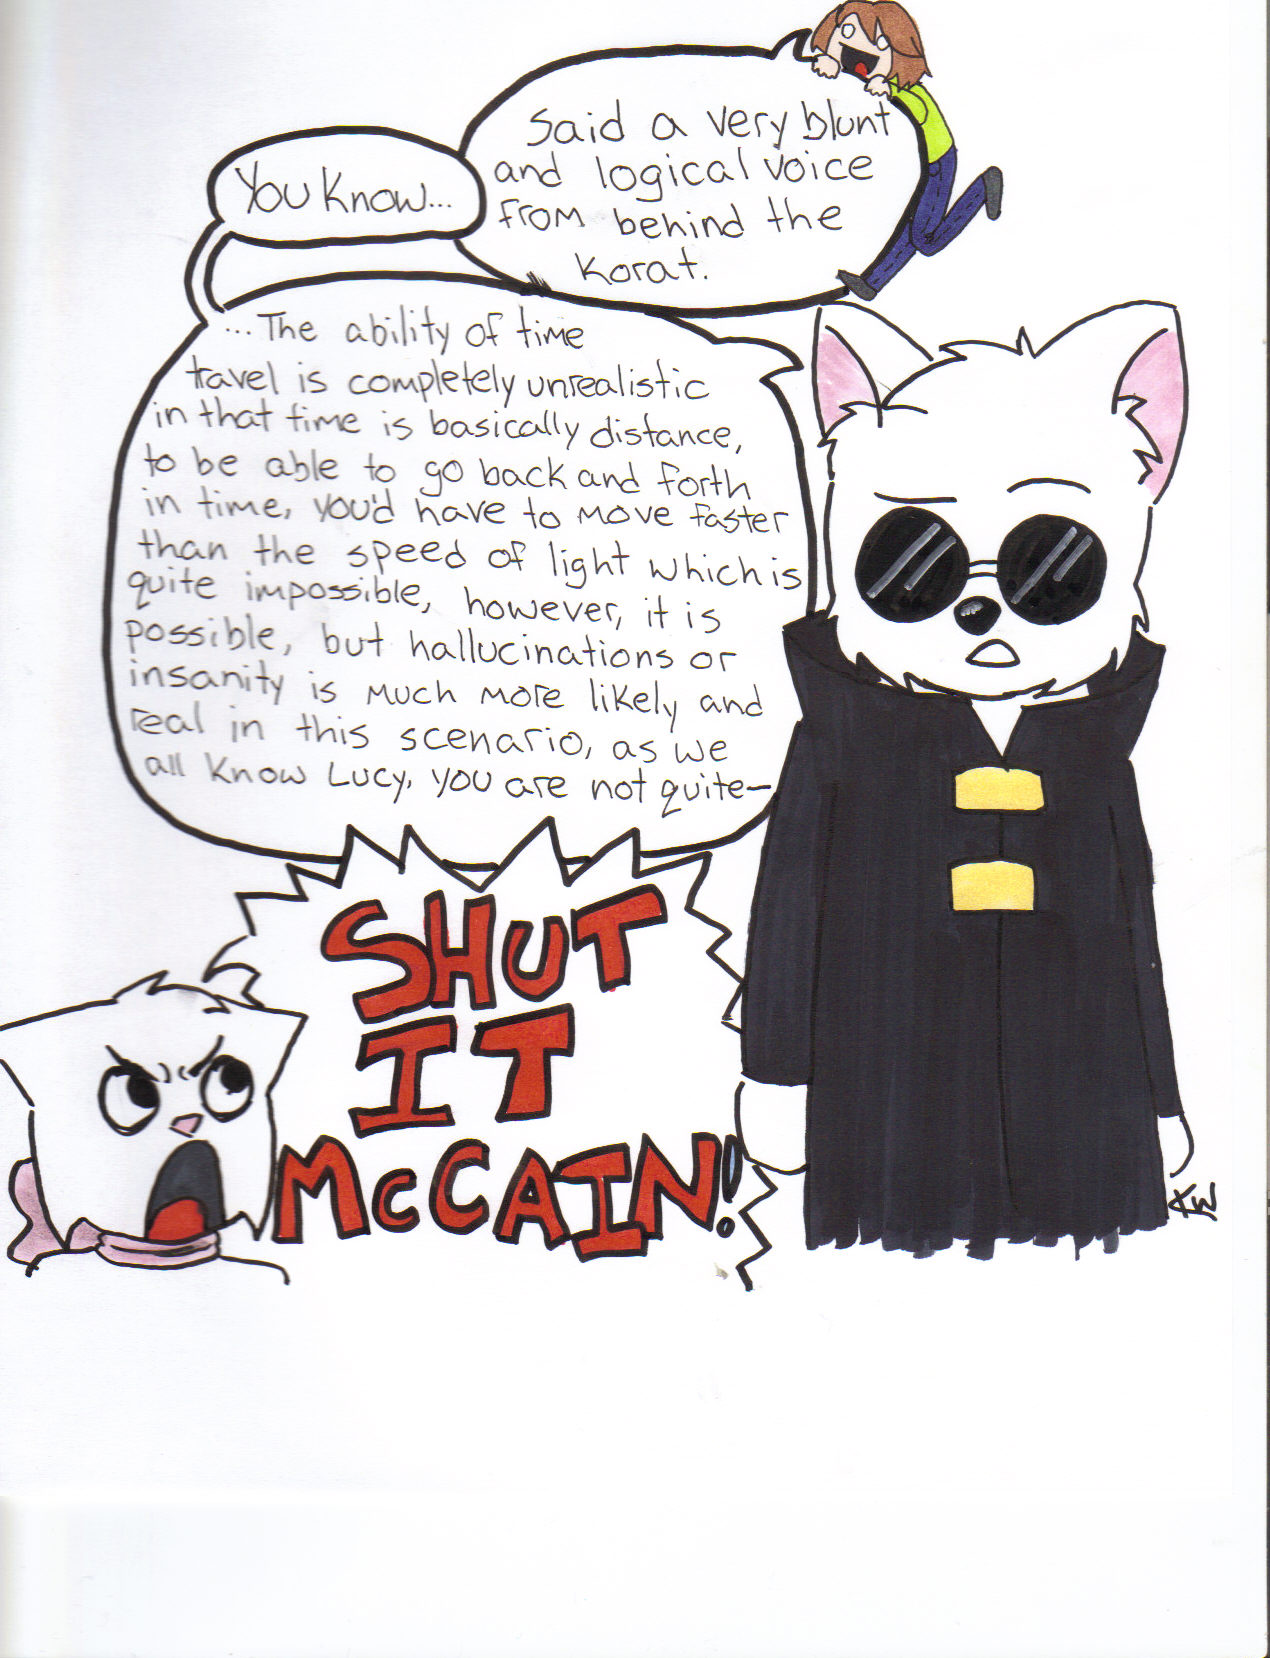 You Know...
Said a very blunt
and logical voice
from behind the
Korat.
...The ability of time
travel is completely unrealistic
in that time is basically distance,
to be able to go back and forth
in time, you'd have to move faster
than the speed of light which is
quite impossible, however, it is
possible, but hallucinations or
insanity is much more likely and
real in this scenario, as we
all know Lucy, you are not quite—
SHUT
IT
McCAIN!
KW